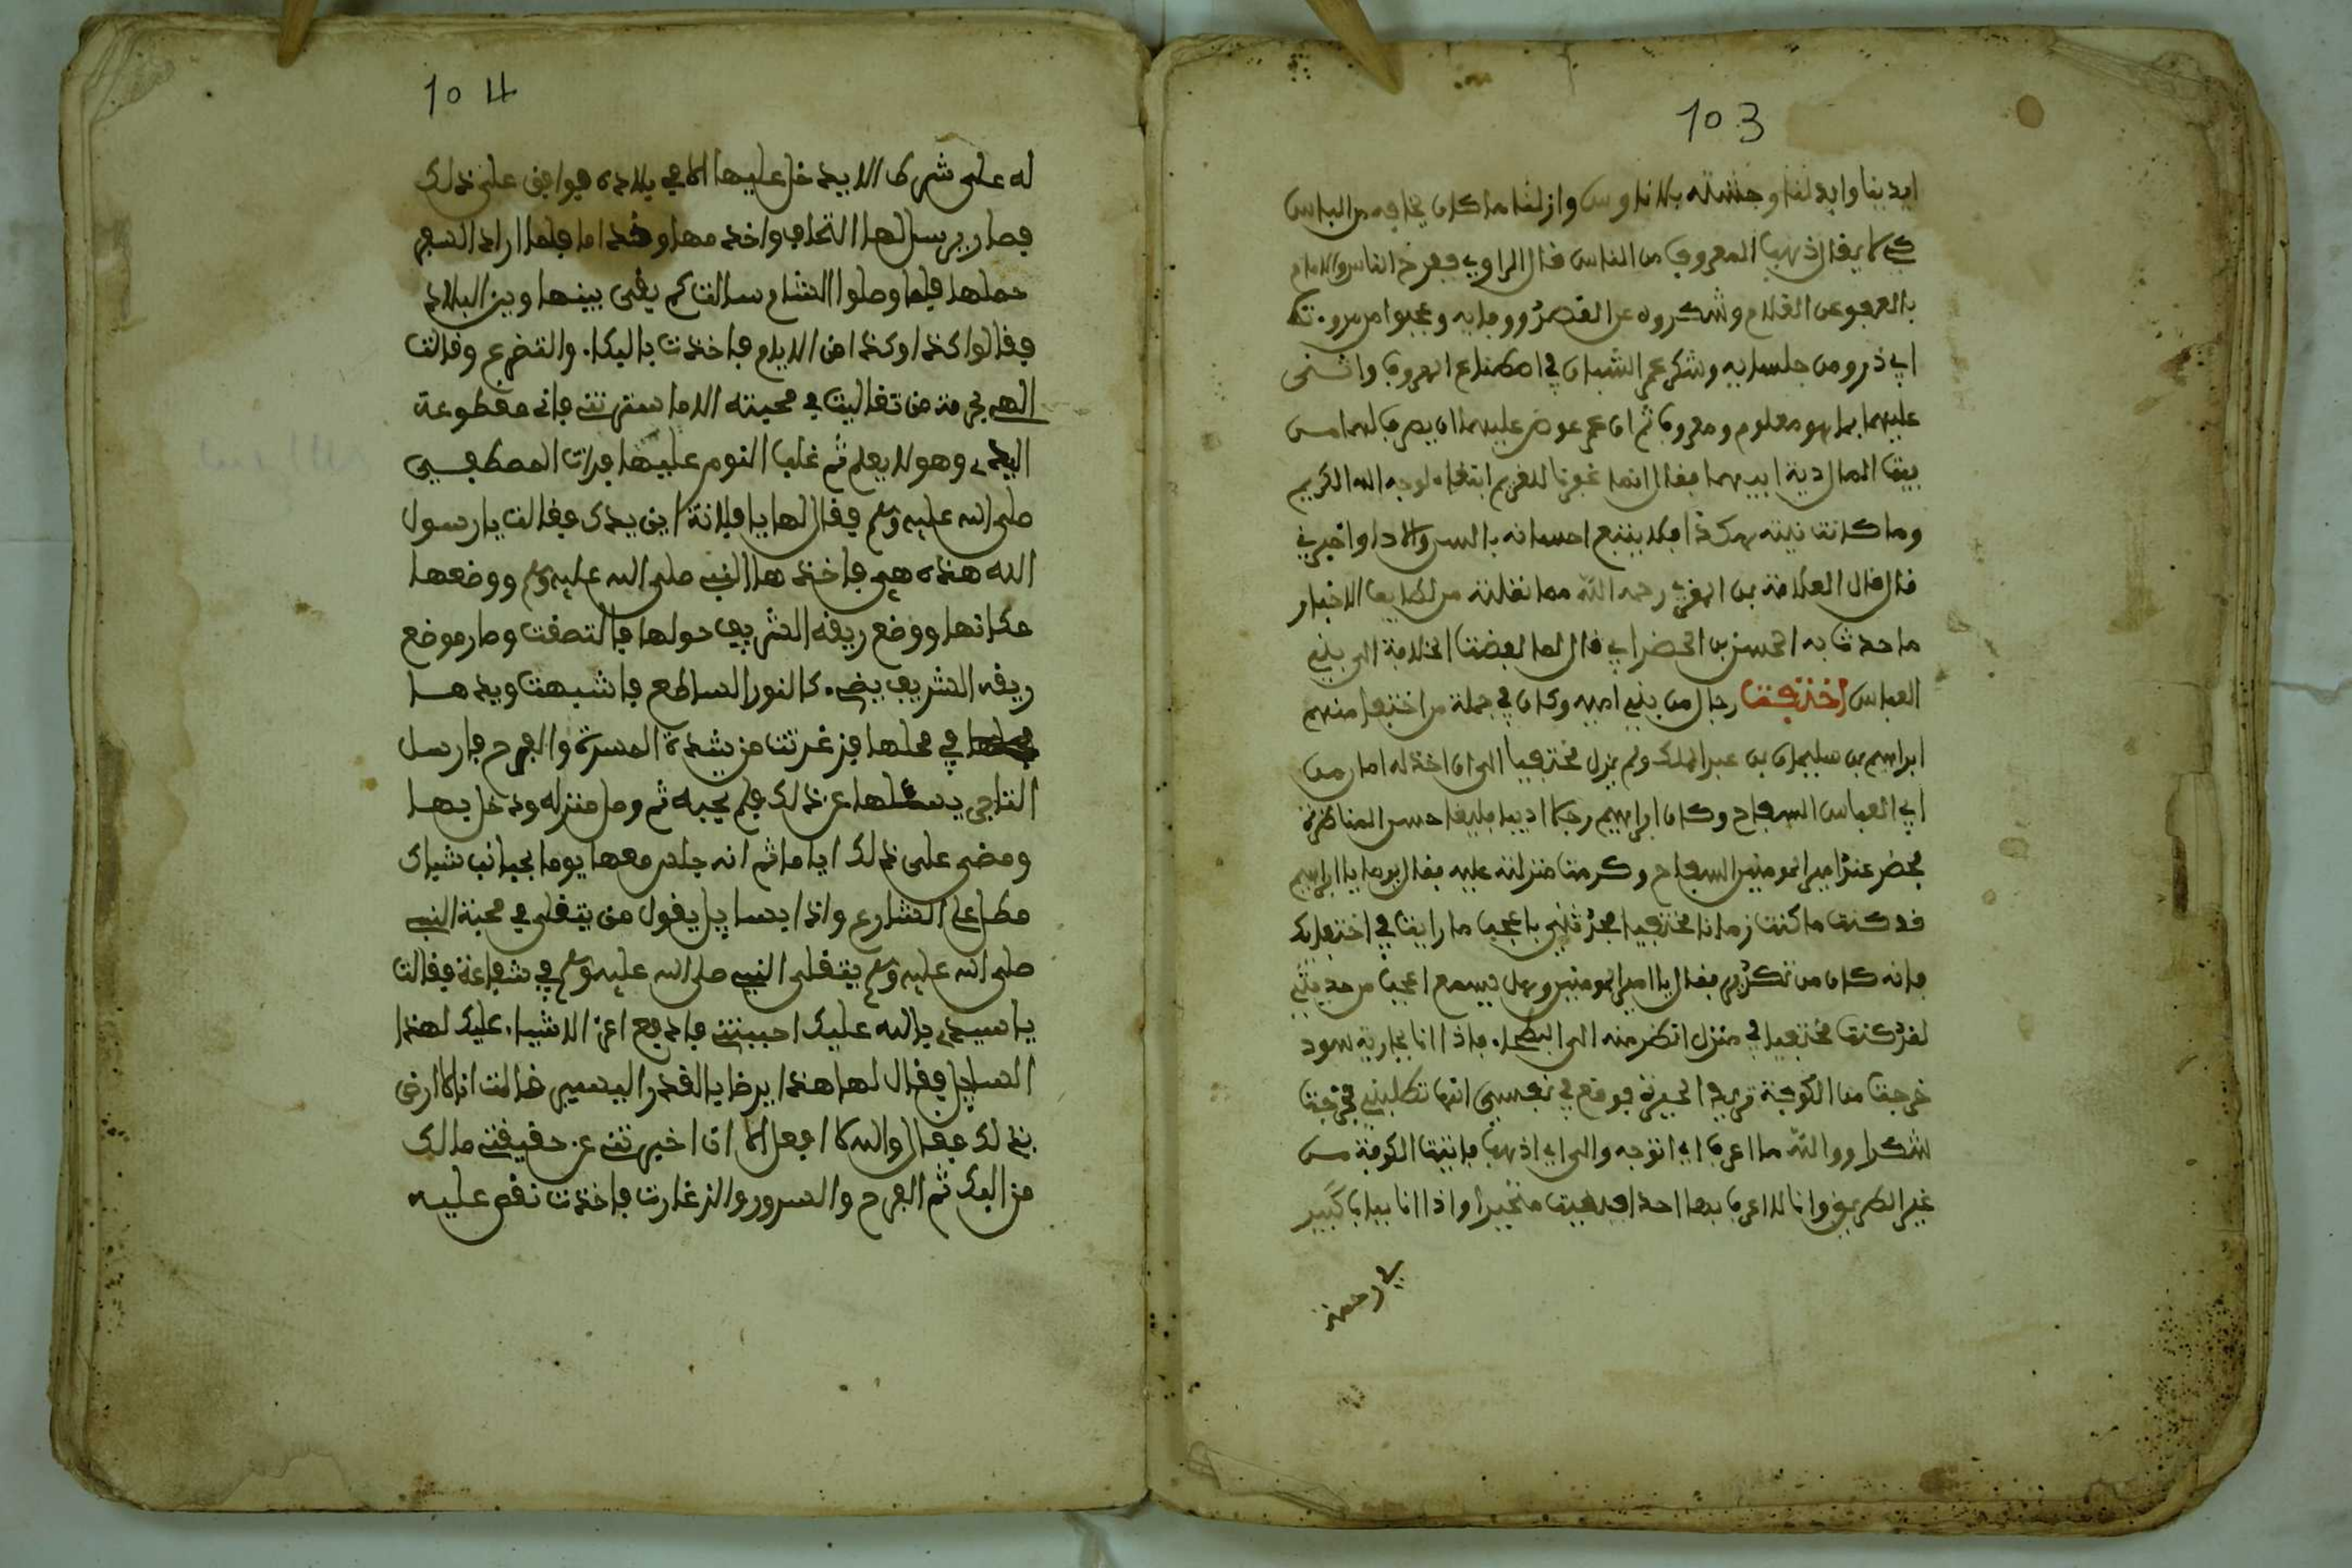 103
ابدينا وابدلنا وحشته بالاناوس وازلنا ما كان يخافه من الباس
كي لا يقال ذهب المعروف من الناس قال الراوي ففرح الناس والامام
بالعفو عن الغلام وشكروه عن القصد ووفايه وعجبوا من مروءة
ابي ذر ومن جلسايه وشكر عمر الشبان في اصطناع المعروف واثنى
عليهما بما هو معلوم ومعروف ثم ان عمر عوض عليهما ان يصرف لهما من
بيت المال دية ابيهما فقال انما عفونا للغريم ابتغاء لوجه الله الكريم
وما كانت نيته هكذا فلا يتبع احسانه بالمن والاذا واخبرني
قال قال العلامة بن المغربي رحمه الله مما نقلته من لطايف الاخبار
ما حدث به الحسن بن الخضر ابي قال لما افضت الخلافة الى بني
العباس اختفت رجال من بني اميه وكان في جملة من اختفا منهم
ابراهيم بن سليمان بن عبد الملك ولم يزل مختفيا الى ان اخذ له امان من
ابي العباس السفاح وكان ابراهيم رجلا اديبا بليغا حسن المناظرة
فحضر عند امير المومنين السفاح وكرمت منزلته عليه فقال يوما يا ابراهيم
قد كنت ما كنت زمانا مختفيا فحدثني باعجب ما رايت في اختفايك
فانه كان من تكريم فقال يا امير المومنين وهل تسمع اعجب من حديثي
لقد كنت مختفيا في منزل انظر منه الى البطحاء فاذا انا بجارية سود
خرجت من الكوفة تريد الحيرة فوقع في نفسي انها تطلبني فخرجت
شكرا ووالله ما اعرف اي اتوجه والى اي اذهب فاتيت الكوفة من
غير الطريق وانا لا اعرف بها احدا فبقيت متحيرا واذا انا بباب كبير
في رحمة
104
له على شرط الا يدخل عليها الا في بلاده فوافق على ذلك
فصار يرسل لها التحاف واخذ مها وخداما فلما اراد السفر
حملها فلما وصلوا الشام سالت كم يفى بينها وبين البلاد
فقالوا كذا وكذا من الايام فاخذت بالبكاء والتضرع وقالت
الهي بحرمة من تغاليت في محبته الا ما سترتني فاني مقطوعة
اليد وهو لا يعلم ثم غلب النوم عليها فرات المصطفى
صلى الله عليه وسلم فقال لها يا فلانة اين يدك فقالت يا رسول
الله هذه هي فاخذها النبي صلى الله عليه وسلم ووضعها
مكانها ووضع ريقه الشريف حولها فالتصقت وصار موضع
ريقه الشريف يضيء كالنور الساطع فانتبهت ويدها
في محلها فزغرتت من شدة المسرة والفرح فارسل
التاجر يسئلها عن ذلك فلم تجبه ثم وصل منزله ودخل بها
ومضى على ذلك اياما ثم انه جلس معها يوما بجانب شباك
مطل على الشارع واذا بسايل يقول من يتغلى في محبة النبي
صلى الله عليه وسلم يتغلى النبي صلى الله عليه وسلم في شفاعة فقالت
يا سيدي بالله عليك احببتني فادفع اعز الاشياء عليك لهذا
السايل فقال لها هذا يرضا بالقدر اليسير قالت انا لا ارضى
بذلك فقال والله لا افعل الا ان اخبرتني عن حقيقة مالك
من البك ثم الفرح والسرور والزغارت فاخذت تقص عليه